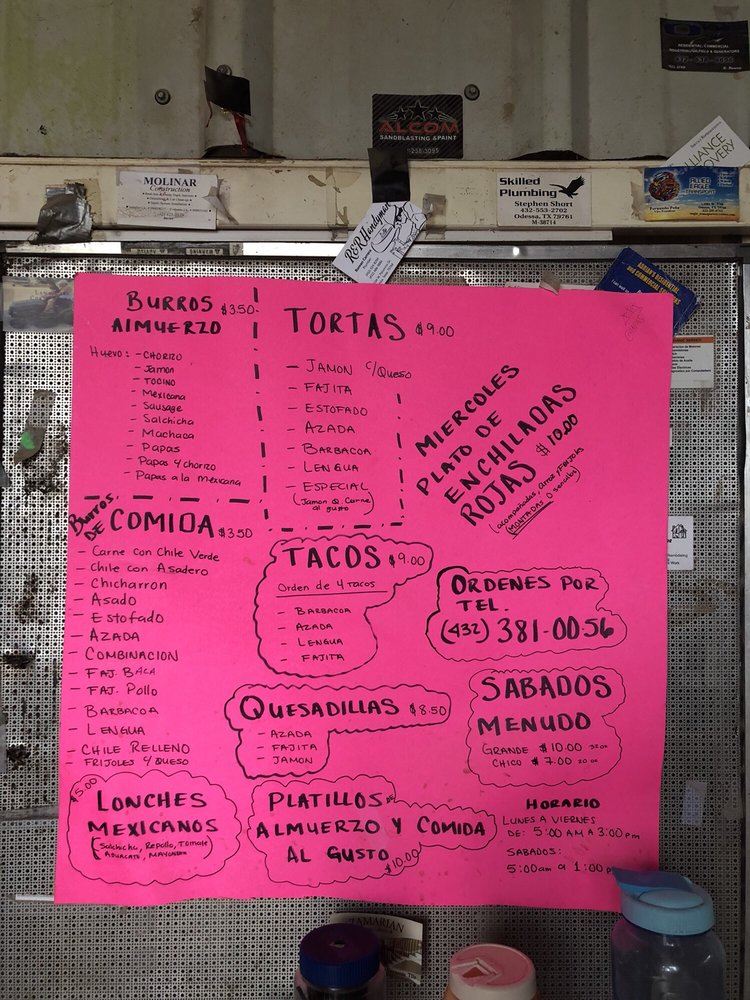 RESIDENTIAL, COMMERCIAL
ALCOM
SANDBLASTING & PAINT
MOLINAR
Construction
Skilled
Plumbing
Stephen Short
432-553-2702
Odessa, TX 79761
M-38714
ALLIANCE
RECOVERY
ALLIED
EAGLE
TRANSPORT
Fernando Peña
R&R Handyman
BURROS $3.50
ALMUERZO
HUEVO: - CHORIZO
- Jamon
- TOCINO
- Mexicana
- Sausage
- Salchicha
- Machaca
- Papas
- Papas y chorizo
- Papas a la mexicana
TORTAS $9.00
- JAMON c/Queso
- FAJITA
- ESTOFADO
- AZADA
- BARBACOA
- LENGUA
- ESPECIAL
(Jamon Q. Carne
al gusto)
MIERCOLES
PLATO DE
ENCHILADAS
ROJAS $10.00
(acompañadas, arroz y frijoles
MONTADAS O sencillas)
BURROS
DE COMIDA $3.50
- Carne con Chile Verde
- Chile con Asadero
- Chicharron
- Asado
- Estofado
- AZADA
- COMBINACION
- FAJ. BACA
- FAJ. Pollo
- BARBACOA
- LENGUA
- CHILE RELLENO
- FRIJOLES Y QUESO
TACOS $9.00
Orden de 4 tacos
- BARBACOA
- AZADA
- LENGUA
- FAJITA
ORDENES POR
TEL.
(432) 381-0056
QUESADILLAS $8.50
- AZADA
- FAJITA
- JAMON
SABADOS
MENUDO
GRANDE $10.00 32 oz
CHICO $7.00 20 oz
$5.00
LONCHES
MEXICANOS
(Salchicha, Repollo, Tomate
AGUACATE, MAYONESA)
PLATILLOS DE
ALMUERZO Y COMIDA
AL GUSTO
$10.00
HORARIO
LUNES A VIERNES
DE: 5:00 AM A 3:00 pm
SABADOS:
5:00am a 1:00 p